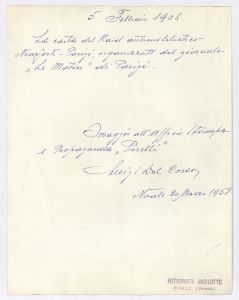 5 Febbraio 1908
La carta del Raid automobilistico
New-York - Parigi, organizzato dal giornale
"Le Matin" di Parigi.
Omaggio all'Ufficio Stampa
e Propaganda "Pirelli"
Luigi Dal Corso
Noale 20 Marzo 1958
FOTOGRAFIA
NOALE (Venezia)